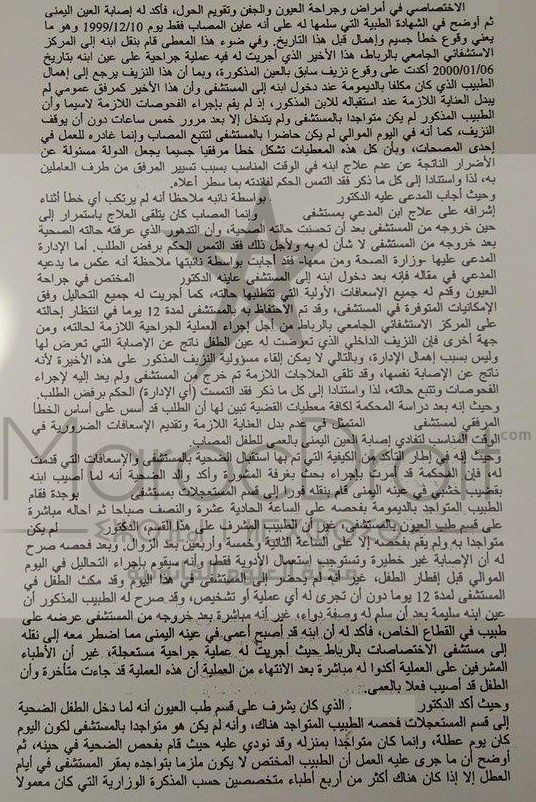 الاختصاصي في أمراض وجراحة العيون والجفن وتقويم الحول، فأكد له إصابة العين اليمنى
ثم أوضح في الشهادة الطبية التي سلمها له على أنه عاين المصاب فقط يوم 1999/12/10 وهو ما
يعني وقوع خطأ جسيم وإهمال قبل هذا التاريخ. وفي ضوء هذا المعطى قام بنقل ابنه إلى المركز
الاستشفائي الجامعي بالرباط، هذا الأخير الذي أجريت له فيه عملية جراحية على عين ابنه بتاريخ
2000/01/06 أكدت على وقوع نزيف سابق بالعين المذكورة، وبما أن هذا النزيف يرجع إلى إهمال
الطبيب الذي كان مكلفا بالديمومة عند دخول ابنه إلى المستشفى وأن هذا الأخير كمرفق عمومي لم
يبدل العناية اللازمة عند استقباله للابن المذكور، إذ لم يقم بإجراء الفحوصات اللازمة لاسيما وأن
الطبيب المذكور لم يكن متواجدا بالمستشفى ولم يتدخل إلا بعد مرور خمس ساعات دون أن يوقف
النزيف، كما أنه في اليوم الموالي لم يكن حاضرا بالمستشفى لتتبع المصاب وإنما غادره للعمل في
إحدى المصحات، وبأن كل هذه المعطيات تشكل خطأ مرفقيا جسيما يجعل الدولة مسئولة عن
الأضرار الناتجة عن عدم علاج ابنه في الوقت المناسب بسبب تسيير المرفق من طرف العاملين
به، لذا واستنادا إلى كل ما ذكر فقد التمس الحكم لفائدته بما سطر أعلاه.
وحيث أجاب المدعى عليه الدكتور بواسطة نائبه ملاحظا أنه لم يرتكب أي خطأ أثناء
إشرافه على علاج ابن المدعي بمستشفى وإنما المصاب كان يتلقى العلاج باستمرار إلى
حين خروجه من المستشفى بعد أن تحسنت حالته الصحية، وأن التدهور الذي عرفته حالته الصحية
بعد خروجه من المستشفى لا شأن له به ولأجل ذلك فقد التمس الحكم برفض الطلب. أما الإدارة
المدعى عليها -وزارة الصحة ومن معها- فقد أجابت بواسطة نائبتها ملاحظة أنه عكس ما يدعيه
المدعي في مقاله فإنه بعد دخول ابنه إلى المستشفى عاينه الدكتور المختص في جراحة
العيون وقدم له جميع الإسعافات الأولية التي تتطلبها حالته، كما أجريت له جميع التحاليل وفق
الإمكانيات المتوفرة في المستشفى، وقد تم الاحتفاظ به بالمستشفى لمدة 12 يوما في انتظار إحالته
على المركز الاستشفائي الجامعي بالرباط من أجل إجراء العملية الجراحية اللازمة لحالته، ومن
جهة أخرى فإن النزيف الداخلي الذي تعرضت له عين الطفل ناتج عن الإصابة التي تعرض لها
وليس بسبب إهمال الإدارة، وبالتالي لا يمكن إلقاء مسؤولية النزيف المذكور على هذه الأخيرة لأنه
ناتج عن الإصابة نفسها، وقد تلقى العلاجات اللازمة ثم خرج من المستشفى ولم يعد إليه لإجراء
الفحوصات وتتبع حالته، لذا واستنادا إلى كل ما ذكر فقد التمست (أي الإدارة) الحكم برفض الطلب.
وحيث إنه بعد دراسة المحكمة لكافة معطيات القضية تبين لها أن الطلب قد أسس على أساس الخطأ
المرفقي لمستشفى المتمثل في عدم بدل العناية اللازمة وتقديم الإسعافات الضرورية في
الوقت المناسب لتفادي إصابة العين اليمنى بالعمى للطفل المصاب.
وحيث إنه في إطار التأكد من الكيفية التي تم بها استقبال الضحية بالمستشفى والإسعافات التي قدمت
له، فإن المحكمة قد أمرت بإجراء بحث بغرفة المشورة وأكد والد الضحية أنه لما أصيب ابنه
بقضيب خشبي في عينه اليمنى قام بنقله فورا إلى قسم المستعجلات بمستشفى بوجدة فقام
الطبيب المتواجد بالديمومة بفحصه على الساعة الحادية عشرة والنصف صباحا ثم أحاله مباشرة
على قسم طب العيون بالمستشفى، غير أن الطبيب المشرف على هذا القسم الدكتور لم يكن
متواجدا به ولم يقم بفحصه إلا على الساعة الثانية وخمسة وأربعين بعد الزوال، وبعد فحصه صرح
له أن الإصابة غير خطيرة وتستوجب استعمال الأدوية فقط، وأنه سيقوم بإجراء التحاليل في اليوم
الموالي قبل إفطار الطفل، غير أنه لم يحضر إلى المستشفى في هذا اليوم وقد مكث الطفل في
المستشفى لمدة 12 يوما دون أن تجرى له أي عملية أو تشخيص، وقد صرح له الطبيب المذكور أن
عين ابنه سليمة بعد أن سلم له وصفة دواء، غير أنه مباشرة بعد خروجه من المستشفى عرضه على
طبيب في القطاع الخاص، فأكد له أن ابنه قد أصبح أعمى في عينه اليمنى مما اضطر معه إلى نقله
إلى مستشفى الاختصاصات بالرباط حيث أجريت له عملية جراحية مستعجلة، غير أن الأطباء
المشرفين على العملية أكدوا له مباشرة بعد الانتهاء من العملية أن هذه العملية قد جاءت متأخرة وأن
الطفل قد أصيب فعلا بالعمى.
وحيث أكد الدكتور الذي كان يشرف على قسم طب العيون أنه لما دخل الطفل الضحية
إلى قسم المستعجلات فحصه الطبيب المتواجد هناك، وأنه لم يكن هو متواجدا بالمستشفى لكون اليوم
كان يوم عطلة، وإنما كان متواجدا بمنزله وقد نودي عليه حيث قام بفحص الضحية في حينه، ثم
أوضح أن ما جرى عليه العمل أن الطبيب المختص لا يكون ملزما بتواجده بمقر المستشفى في أيام
العطل إلا إذا كان هناك أكثر من أربع أطباء متخصصين حسب المذكرة الوزارية التي كان معمولا
MarocDroit
.com